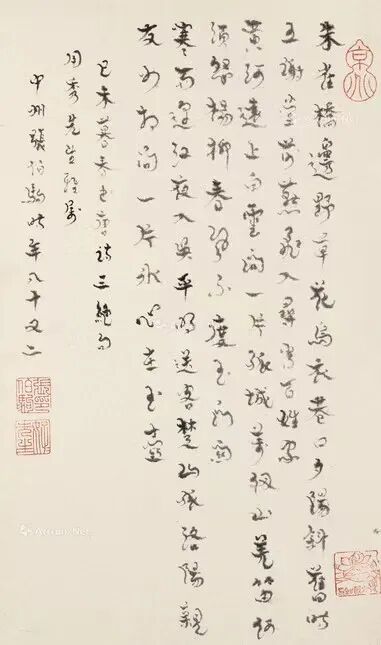 朱雀橋邊野草花烏衣巷口夕陽斜舊時
王謝堂前燕飛入尋常百姓家
黃河遠上白雲間一片孤城萬仞山羌笛何
須怨楊柳春風不度玉門關
寒雨連江夜入吳平明送客楚山孤洛陽親
友如相問一片冰心在玉壺
己未暮春書唐詩三絕句
秀先生雅屬
中州張伯駒時年八十又二
Artron.Net